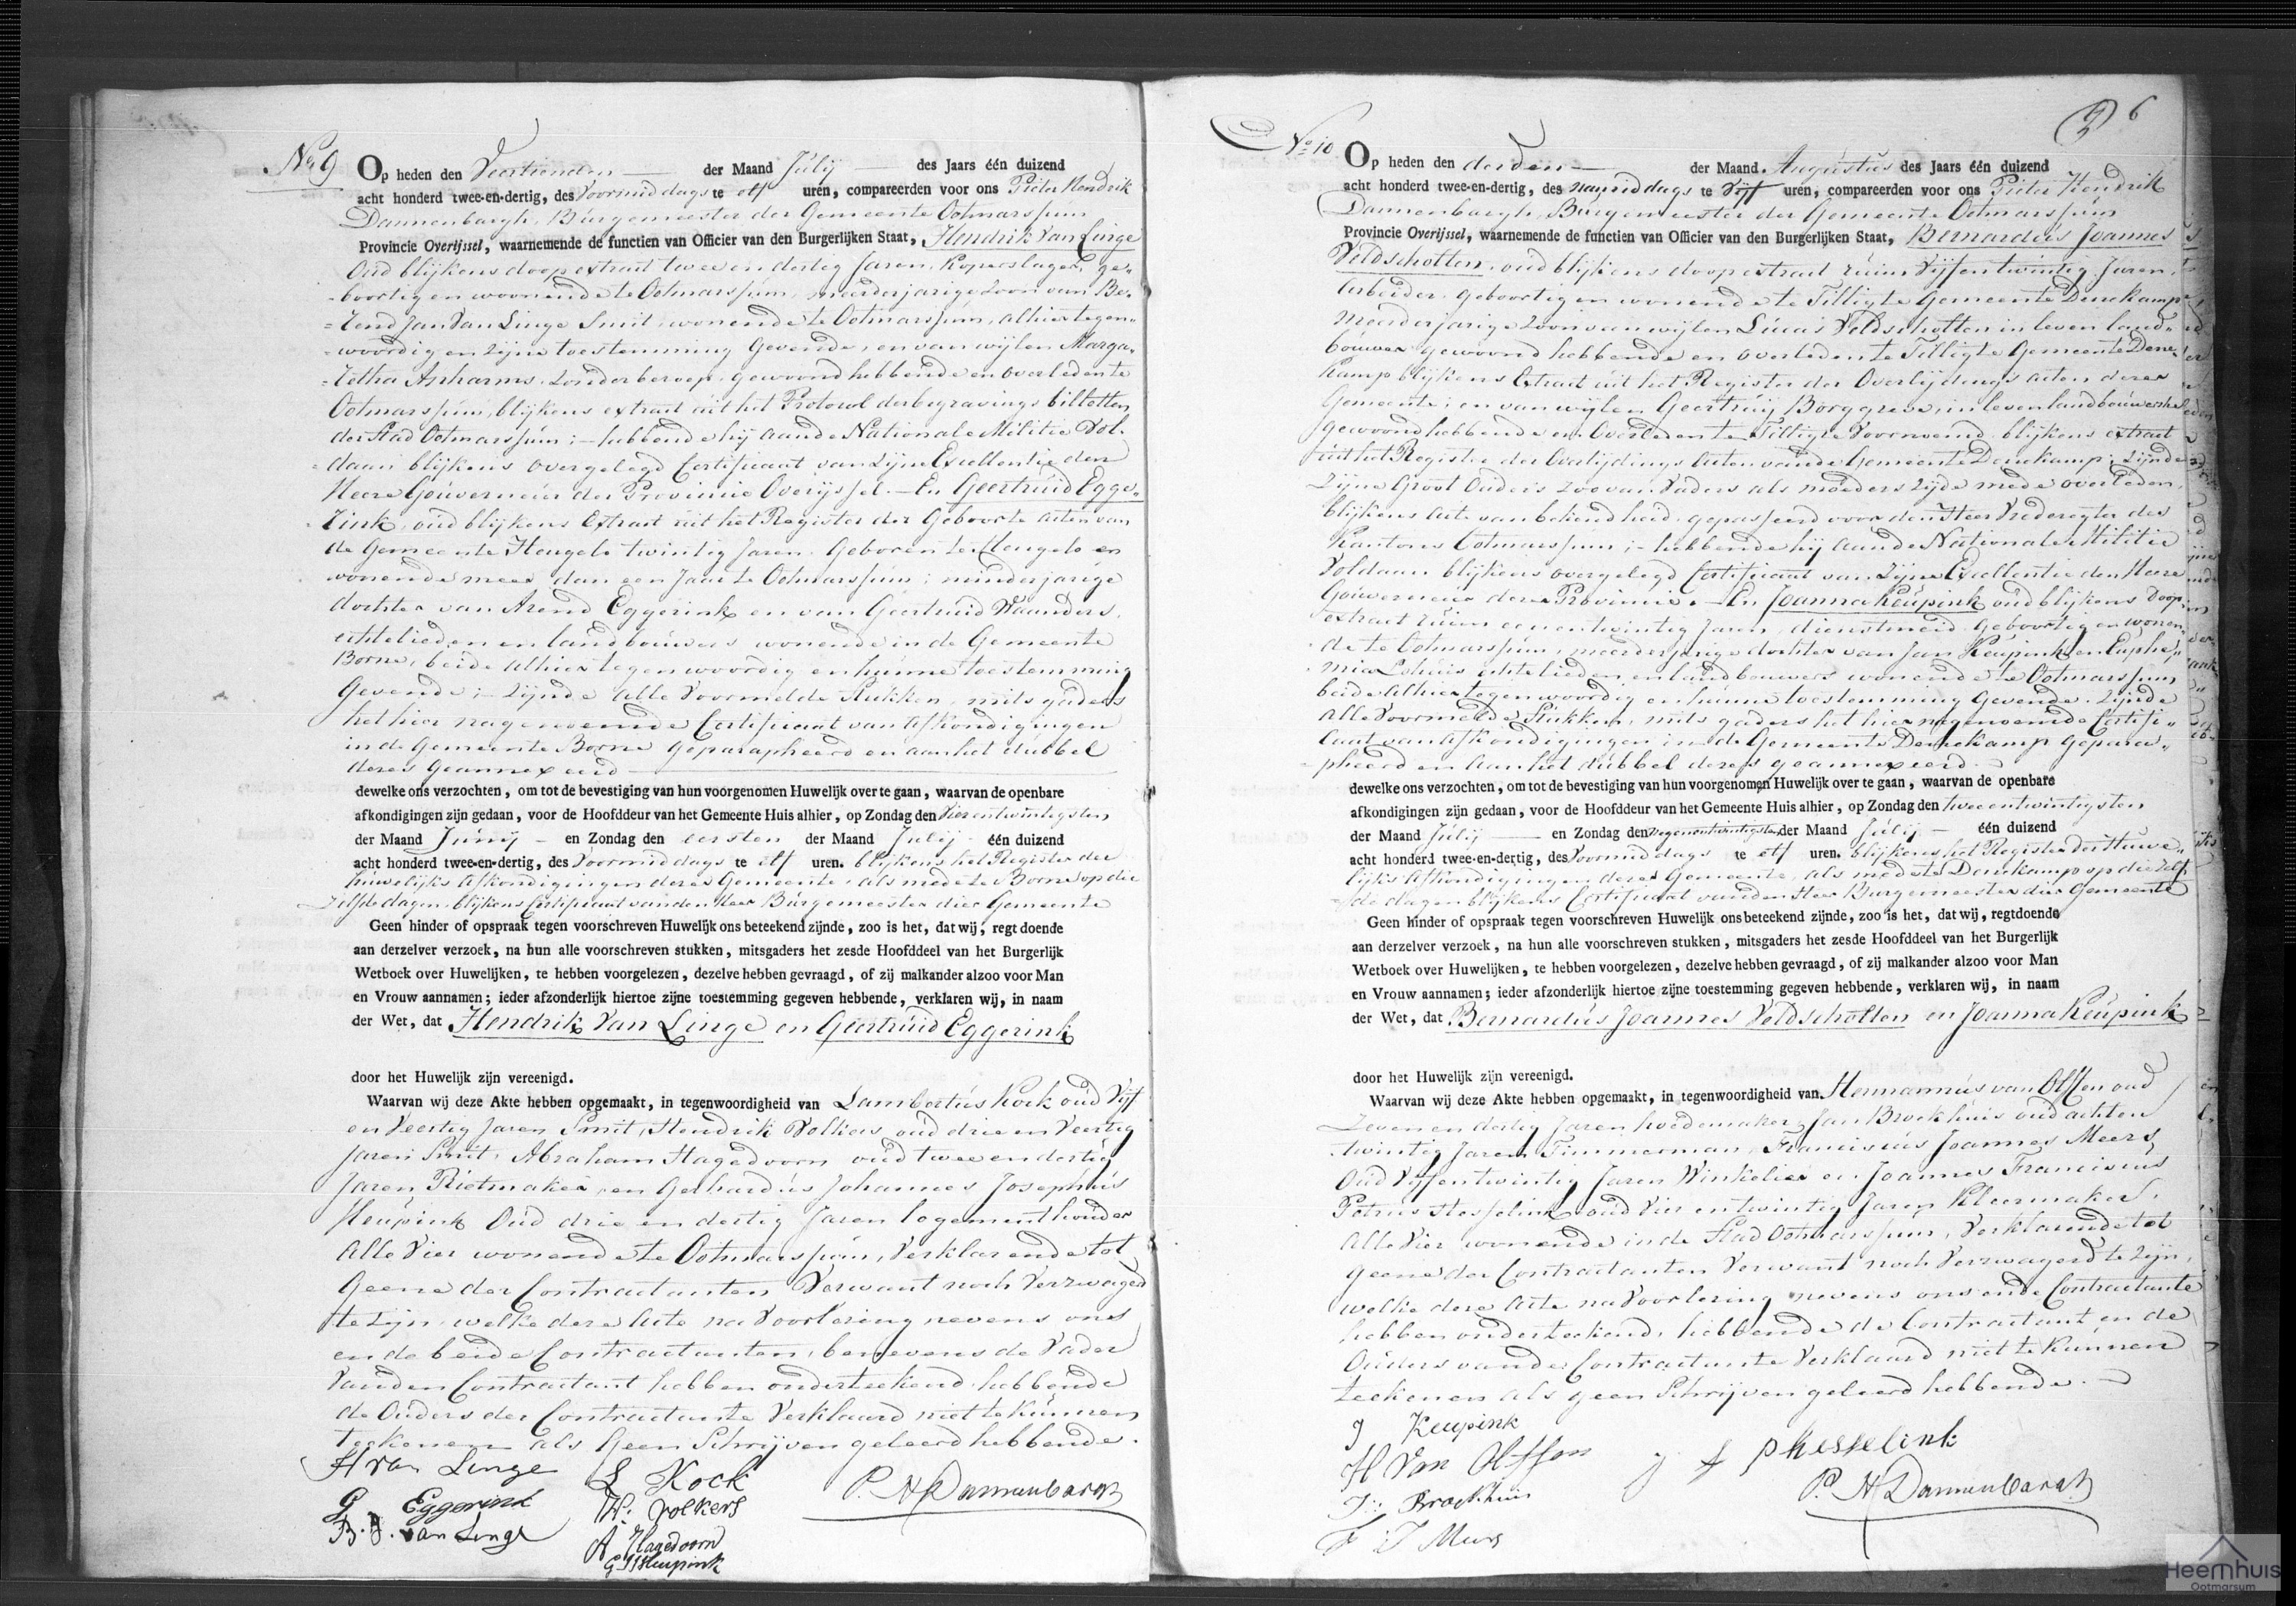 No 9
Op heden den Veertienden der Maand Julij des Jaars één duizend
acht honderd twee-en-dertig, des Voormiddags te elf uren, compareerden voor ons Pieter Hendrik
Dannenbargh, Burgemeester der Gemeente Ootmarssum
Provincie Overijssel, waarnemende de functien van Officier van den Burgerlijken Staat, Hendrik Van Linge
Oud blijkens doopextract twee en dertig Jaren, Koperslager, ge„
boortig en woonende te Ootmarssum, meerderjarige zoon van Be„
„rend Jan Van Linge Smit, wonende te Ootmarssum, alhier tegen„
„woordig en zijne toestemming Gevende, en van wijlen Marga„
„retha Anharms, zonder beroep, gewoond hebbende en overleden te
Ootmarssum, blijkens extract uit het Protocol der begravings billetten
der Stad Ootmarssum; – hebbende hij aan de Nationale Militie vol„
„daan blijkens overgelegd Certificaat van zijne Excellentie den
Heere Gouverneur der Provincie Overijssel. – En Geertruid Egge„
„rink, oud blijkens Extract uit het Register der Geboorte acten van
de Gemeente Hengelo twintig Jaren, Geboren te Hengelo en
wonende meer dan een Jaar te Ootmarssum; minderjarige
dochter van Arend Eggerink en van Geertruid Waanders,
echtelieden en landbouwers wonende in de Gemeente
Borne, beide alhier tegenwoordig en hunne toestemming
Gevende; – zijnde alle voormelde Stukken, mitsgaders
het hier nagenoemde Certificaat van Afkondigingen
in de Gemeente Borne geparapheerd en aan het dubbel
dezes geannexeerd
dewelke ons verzochten, om tot de bevestiging van hun voorgenomen Huwelijk over te gaan, waarvan de openbare
afkondigingen zijn gedaan, voor de Hoofddeur van het Gemeente Huis alhier, op Zondag den Vierentwintigsten
der Maand Junij en Zondag den eersten der Maand Julij één duizend
acht honderd twee-en-dertig, des Voormiddags te elf uren. blijkens het Register der
huwelijks Afkondigingen dezer Gemeente, als mede te Borne op die
zelfde dagen, blijkens Certificaat van den Heer Burgemeester dier Gemeente
Geen hinder of opspraak tegen voorschreven Huwelijk ons beteekend zijnde, zoo is het, dat wij, regt doende
aan derzelver verzoek, na hun alle voorschreven stukken, mitsgaders het zesde Hoofddeel van het Burgerlijk
Wetboek over Huwelijken, te hebben voorgelezen, dezelve hebben gevraagd, of zij malkander alzoo voor Man
en Vrouw aannamen; ieder afzonderlijk hiertoe zijne toestemming gegeven hebbende, verklaren wij, in naam
der Wet, dat Hendrik Van Linge en Geertruid Eggerink
door het Huwelijk zijn vereenigd.
Waarvan wij deze Akte hebben opgemaakt, in tegenwoordigheid van Lambertus Kock oud vijf
en Veertig Jaren Smit, Hendrik Volkers oud drie en Veertig
Jaren Smit, Abraham Hagedoorn oud twee en dertig
Jaren Rietmaker, en Gerhardus Johannes Josephus
Heupink Oud drie en dertig Jaren logementhouder
Alle Vier wonende te Ootmarssum, Verklarende tot
Geene der Contractanten Verwant noch Verzwagerd
te zijn, welke deze Acte na Voorlezing nevens ons
en de beide Contractanten, benevens de Vader
van den Contractant hebben onderteekend, hebbende
de Ouders der Contractante Verklaard niet te kunnen
teekenen als Geen Schrijven geleerd hebbende.
H van Linge
G Eggerink
B. J. van Linge
L Kock
H: Volkers
A Hagedoorn
G J J Heupink
P. H Dannenbargh
6
No 10 Op heden den derden der Maand Augustus des Jaars één duizend
acht honderd twee-en-dertig, des namiddags te Vijf uren, compareerden voor ons Pieter Hendrik
Dannenbargh, Burgemeester der Gemeente Ootmarssum
Provincie Overijssel, waarnemende de functien van Officier van den Burgerlijken Staat, Bernardus Joannes
Veldscholten, oud blijkens doopextract ruim Vijfentwintig Jaren,
Arbeider, geboortig en wonende te Tilligte Gemeente Denekamp,
Meerderjarige zoon van wijlen Lucas Veldscholten in leven land„
bouwer gewoond hebbende en overleden te Tilligte Gemeente Dene„
kamp blijkens Extract uit het Register der Overlijdings acten dezer
Gemeente; en van wijlen Geertruij Borggreve, in leven landbouwersche
gewoond hebbende en Overleden te Tilligte Voornoemd, blijkens extract
uit het Register der Overlijdings Acten van de Gemeente Denekamp; zijnde
zijne Groot Ouders zoo van Vaders als moeders zijde mede overleden,
blijkens acte van bekendheid, gepasseerd voor den Heer Vrederegter des
Kantons Ootmarssum; – hebbende hij aan de Nationale Militie
Voldaan blijkens overgelegd Certificaat van zijne Excellentie den Heere
Gouverneur dezer Provincie. – En Joanna Keupink oud blijkens doop„
extract ruim eenentwintig Jaren, dienstmeid, geboortig en wonen„
de te Ootmarssum, meerderjarige dochter van Jan Keupink en Euphe„
mia Eshuis echtelieden, en landbouwers wonende te Ootmarssum
beide alhier tegenwoordig en hunne toestemming Gevende. zijnde
alle voormelde Stukken, mitsgaders het hier nagenoemde Certifi„
caat van Afkondigingen in de Gemeente Denekamp gepara„
pheerd en aan het dubbel dezes geannexeerd.
dewelke ons verzochten, om tot de bevestiging van hun voorgenomen Huwelijk over te gaan, waarvan de openbare
afkondigingen zijn gedaan, voor de Hoofddeur van het Gemeente Huis alhier, op Zondag den tweeentwintigsten
der Maand Julij en Zondag den negenentwintigsten der Maand Julij één duizend
acht honderd twee-en-dertig, des Voormiddags te elf uren. blijkens het Register der Huwe„
lijks Afkondigingen dezer Gemeente, als mede te Denekamp op die zelf„
de dagen blijkens Certificaat van den Heer Burgemeester dier Gemeente
Geen hinder of opspraak tegen voorschreven Huwelijk ons beteekend zijnde, zoo is het, dat wij, regtdoende
aan derzelver verzoek, na hun alle voorschreven stukken, mitsgaders het zesde Hoofddeel van het Burgerlijk
Wetboek over Huwelijken, te hebben voorgelezen, dezelve hebben gevraagd, of zij malkander alzoo voor Man
en Vrouw aannamen; ieder afzonderlijk hiertoe zijne toestemming gegeven hebbende, verklaren wij, in naam
der Wet, dat Bernardus Joannes Veldscholten en Joanna Keupink
door het Huwelijk zijn vereenigd.
Waarvan wij deze Akte hebben opgemaakt, in tegenwoordigheid van Hermannus van Olffen oud
Zevenendertig Jaren hoedemaker, Jan Broekhuis oud achten
twintig Jaren Timmerman, Franciscus Joannes Meers
Oud Vijfentwintig Jaren Winkelier en Joannes Franciscus
Petrus Hesselink oud Vier entwintig Jaren Kleermaker,
Alle Vier wonende in de Stad Ootmarssum, Verklarende tot
Geene der Contractanten Verwant noch Verzwagerd te zijn,
welke deze Acte na Voorlezing nevens ons en de Contractante
hebben onderteekend, hebbende de Contractant en de
Ouders van de Contractante Verklaard niet te kunnen
teekenen als geen Schrijven geleerd hebbende.
J Keupink
H Van Olffen
J: Broekhuis
F J Meers
J F P Hesselink
P. H Dannenbargh
Heemhuis
Ootmarsum